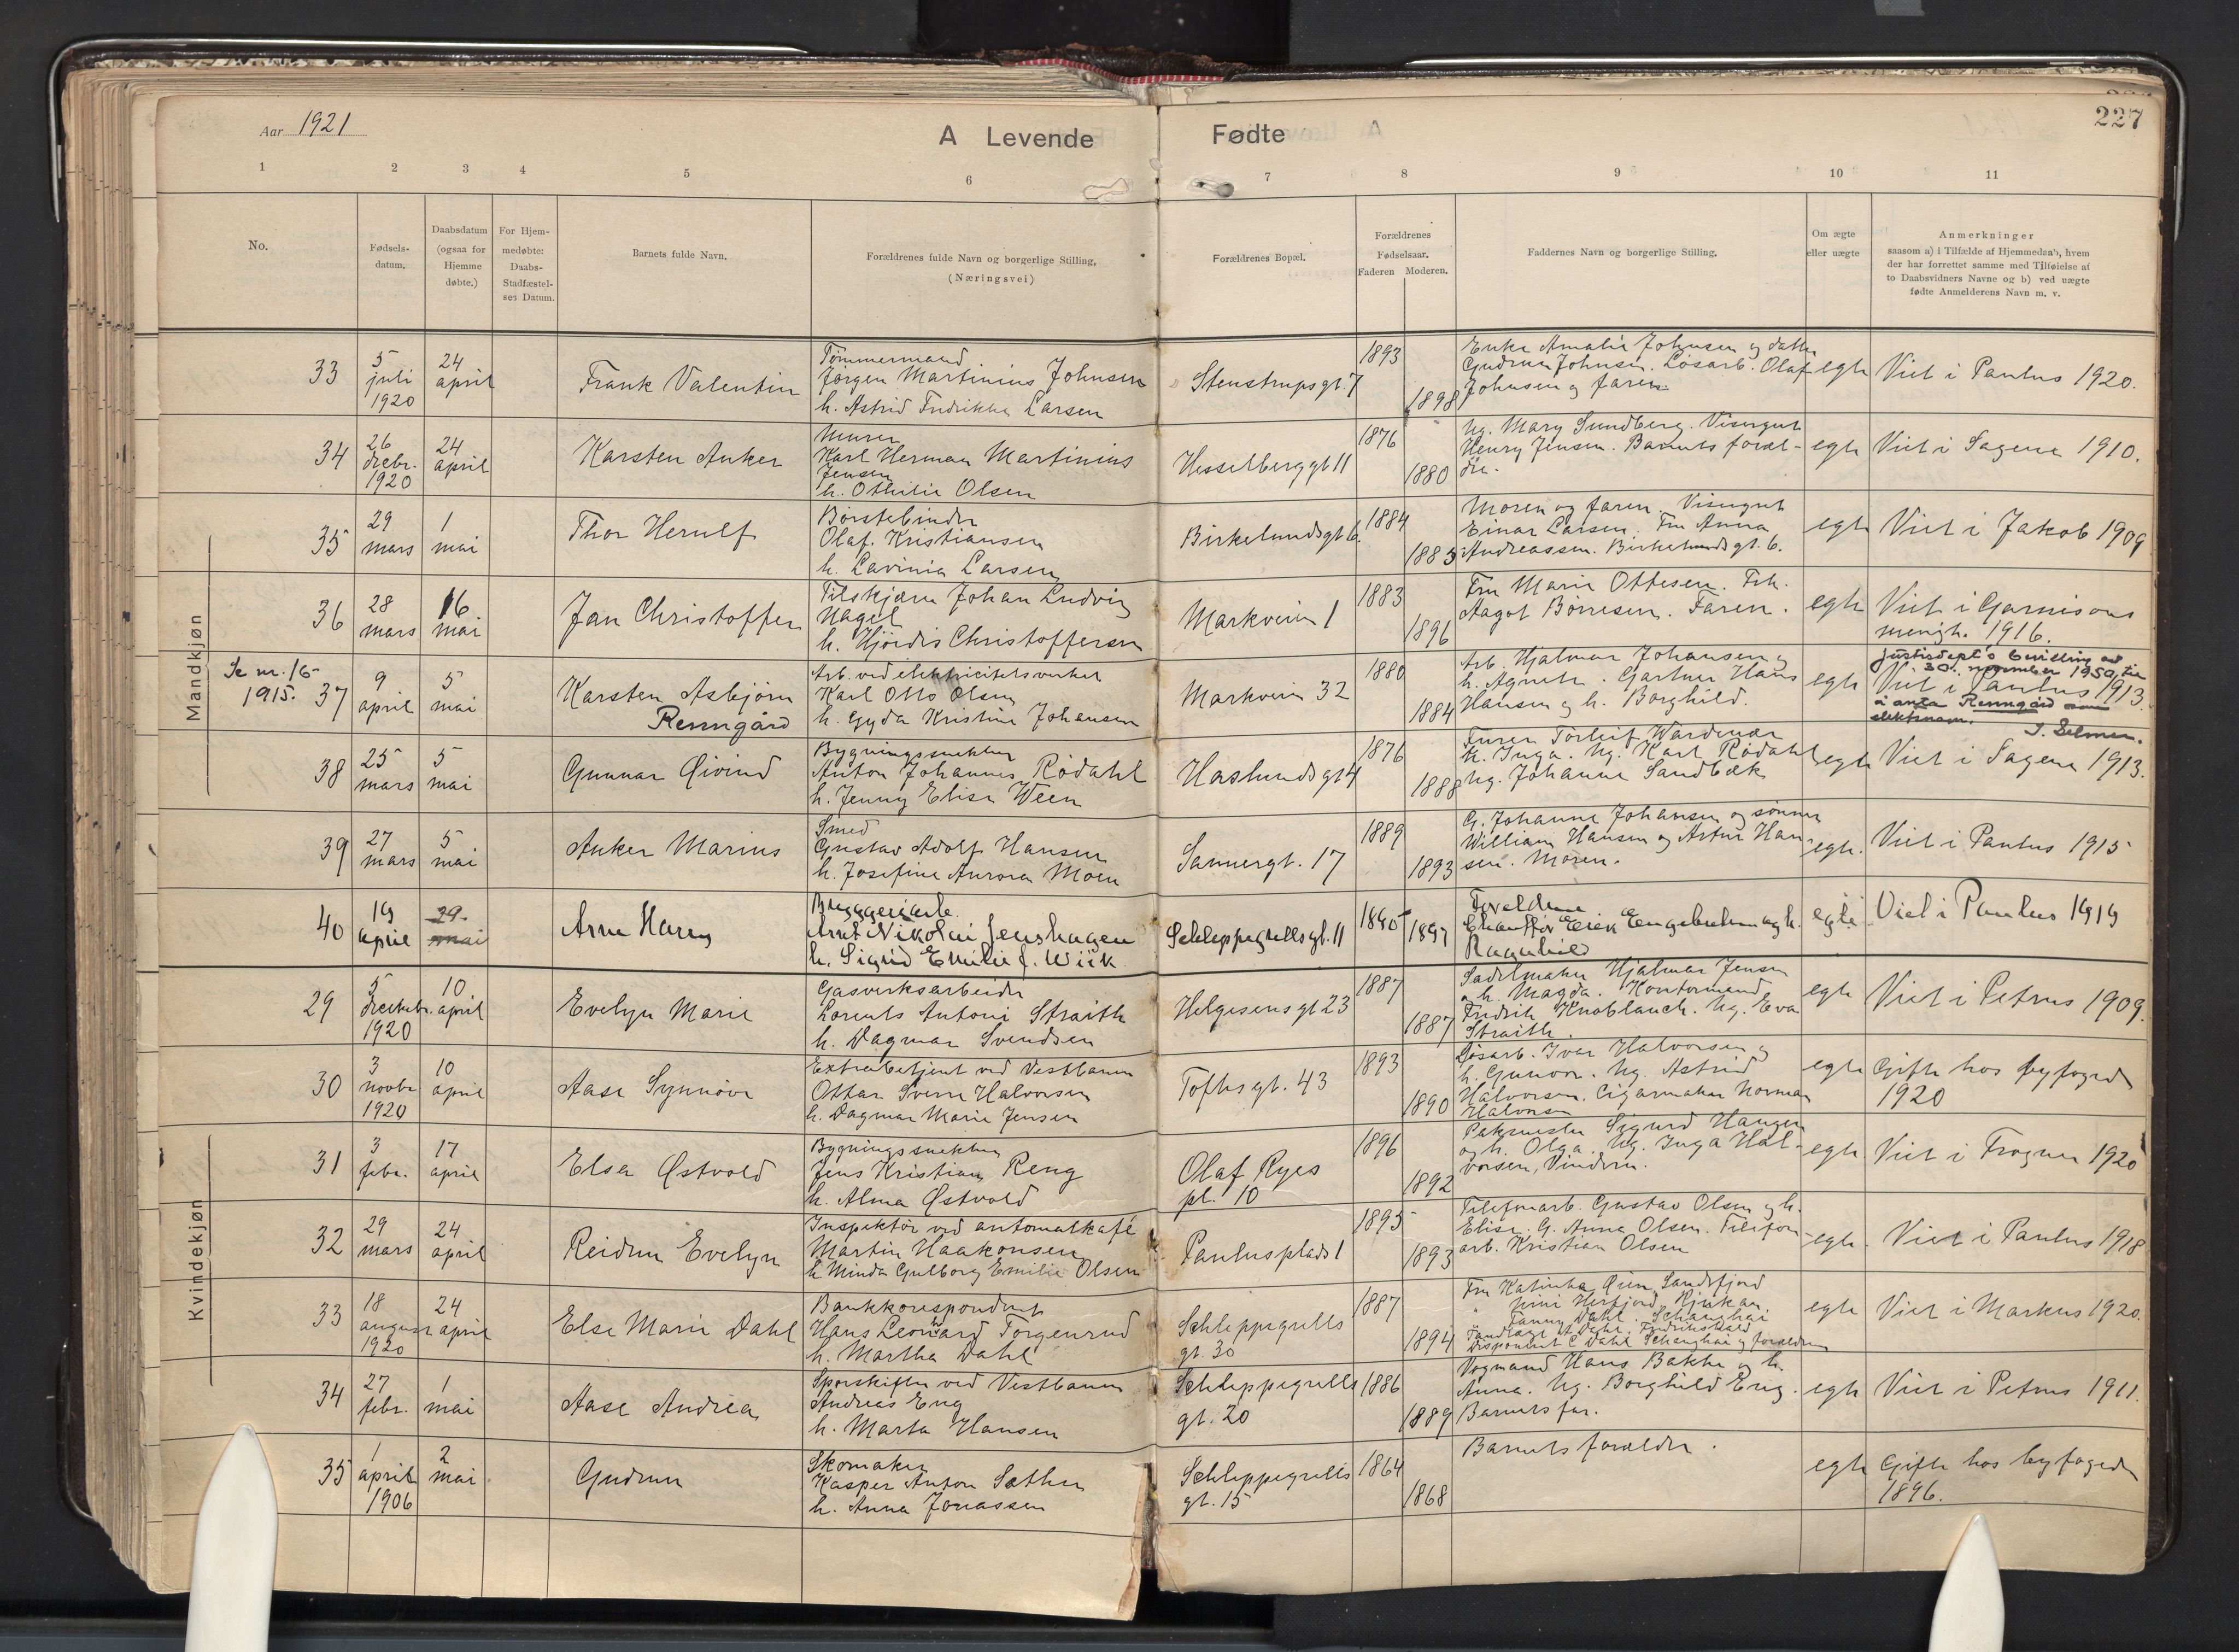 Aar 1921
A Levende Fødte
227
1 2 3 4 5 6 7 8 9 10 11
No.
Fødsels-
datum.
Daabsdatum
(ogsaa for
Hjemme
døbte.)
For Hjem-
medøbte:
Daabs-
Stadfæstel-
ses Datum.
Barnets fulde Navn.
Forældrenes fulde Navn og borgerlige Stilling,
(Næringsvei)
Forældrenes Bopæl.
Forældrenes
Fødselsaar.
Faderen Moderen.
Faddernes Navn og borgerlige Stilling.
Om ægte
eller uægte
Anmerkninger
saasom a) i Tilfælde af Hjemmedaab, hvem
der har forrettet samme med Tilføielse af
to Daabsvidners Navne og b) ved uægte
fødte Anmelderens Navn m. v.
Mandkjøn
33
5
juli
1920
24
april
Frank Valentin
Tømmermand
Jørgen Martinius Johnsen
h. Astrid Fredrikke Larsen
Stenstrupsgt. 7
1893
1898
Enke Amalie Johnsen og datter
Gudrun Johnsen. Løsarb. Olaf
Johnsen og faren.
egte
Viet i Paulus 1920.
34
26
decbr.
1920
24
april
Karsten Anker
Murer
Karl Herman Martinius
Jensen
h. Othilie Olsen
Hesselberggt 11
1876
1880
Ug. Mary Sundberg. Visergut
Henry Jensen. Barnets foræl-
dre.
egte
Viet i Sagene 1910.
35
29
mars
1
mai
Thor Herulf
Børstebinder
Olaf Kristiansen
h. Lavinia Larsen
Birkelundsgt 6.
1884
1883
Moren og faren. Visergut
Einar Larsen. Fru Anna
Andreassen. Birkelundsgt. 6.
egte
Viet i Jakob 1909
36
28
mars
16
mai
Jan Christoffer
Tilskjærer Johan Ludvig
Nagel
h. Hjørdis Christoffersen
Markveien 1
1883
1896
Fru Marie Ottesen. Frk.
Aagot Børresen. Faren.
egte
Viet i Garnisons
menigh. 1916.
Se nr. 16
1915.
37
9
april
5
mai
Karsten Asbjørn
Renngård
Arb. ved elektricitetsverket
Karl Otto Olsen
h. Gyda Kristine Johansen
Markveien 32
1880
1884
Arb. Hjalmar Johansen og
h. Agnete. Gartner Hans
Hansen og h. Borghild.
egte
Justisdept's bevilling av
30. november 1950 til
Viet i Paulus 1913.
å anta Renngård som
slektsnavn.
S. Selmer.
38
25
mars
5
mai
Gunnar Øivind
Bygningssnekker
Anton Johannes Rødahl
h. Jenny Elise Ween
Haslundsgt 4
1876
1888
Furer Torleif Wardenær
h. Inga. Ug. Karl Rødahl
Ug. Johanne Sandbæk
egte
Viet i Sagene 1913.
39
27
mars
5
mai
Anker Marius
Smed
Gustav Adolf Hansen
h. Josefine Aurora Moen
Sannergt. 17
1889
1893
G. Johanne Johansen og sønner
William Hansen og Artur Han-
sen. Moren.
egte.
Viet i Paulus 1915
40
19
april
29.
mai
Arne Harry
Bryggeriarb.
Arnt Nikolai Jenshagen
h. Sigrid Emilie f. Wiik
Schleppegrellsgt. 11
1895
1897
Foreldrene
Chauffør Erik Engebretsen og h.
Ragnhild
egte
Viet i Paulus 1919
Kvindekjøn
29
5
decebr.
1920
10
april
Evelyn Marie
Gasverksarbeider
Lorents Antoni Straith
h. Dagmar Svendsen
Helgesensgt 23
1887
1887
Sadelmaker Hjalmar Jensen
og h. Magda. Kontormand
Fredrik Knoblauch. Ug. Eva
Straith.
egte
Viet i Petrus 1909.
30
3
novbr
1920
10
april
Aase Synnøve
Extrabetjent ved Vestbanen
Ottar Sverre Halvorsen
h. Dagmar Marie Jensen
Toftesgt. 43
1893
1890
Løsarb. Ivar Halvorsen og
h. Gunvor. Ug. Astrid
Halvorsen. Cigarmaker Norman
Halvorsen
egte
Gifte hos byfogden
1920
31
3
febr.
17
april
Elsa Østvold
Bygningssnekker
Jens Kristian Reng
h. Alma Østvold
Olaf Ryes
pl. 10
1896
1892
Pakmester Sigurd Haugen
og h. Olga. Ug. Inga Hal-
vorsen, Vinderen.
egte
Viet i Frogner 1920
32
29
mars
24
april
Reidun Evelyn
Inspektør ved automatkafé
Martin Haakonsen
h Minda Gulborg Emilie Olsen
Paulusplads 1
1895
1893
Telefonarb. Gustav Olsen og h.
Elise. G. Anna Olsen. Telefon-
arb. Kristian Olsen
egte.
Viet i Paulus 1918
33
18
august
1920
24
april
Else Marie Dahl
Bankkorespondent
Hans Leonard Torgenrud
h. Martha Dahl
Schleppegrells
gt. 30
1887
1894
Fru Katinka Øien Sandefjord
" Herfjord, Rjukan.
" Fanny Dahl. Schanghai
Tandlæge A Dahl. Fredrikshald
Disponent C Dahl Schanghai og forældrene
egte
Viet i Markus 1920.
34
27
febr.
1
mai
Aase Andrea
Sporskifter ved Vestbanen
Andreas Eng
h. Marta Hansen
Schleppegrells
gt. 20
1886
1889
Vognmand Hans Bakke og h.
Anna. Ug. Borghild Eng.
Barnets far.
egte
Viet i Petrus 1911.
35
1
april
1906
2
mai
Gudrun
Skomaker
Kasper Anton Sæther
h. Anna Jonassen
Schleppegrells
gt. 15
1864
1868
Barnets forældre.
egte
Gifte hos byfogden
1896.